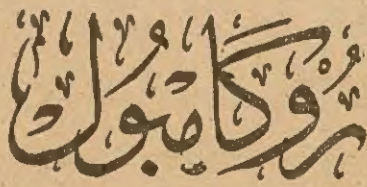 رُوْكَامْبُول